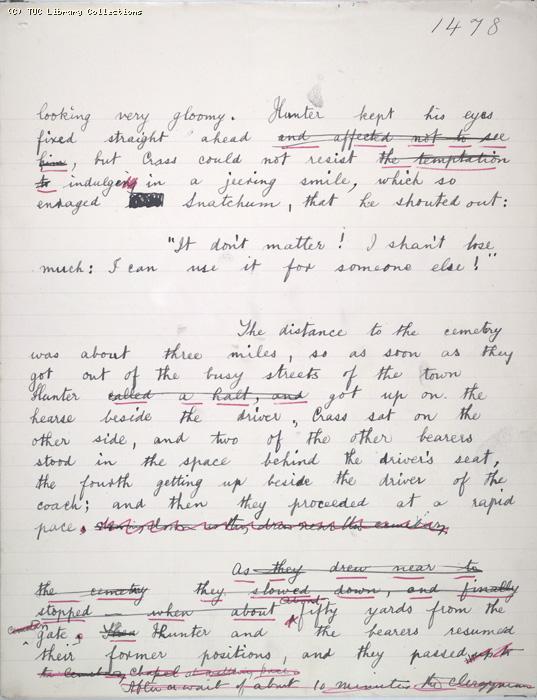 (C) TUC Library Collections
1478
looking very gloomy. Hunter kept his eyes
fixed straight ahead and affected not to see
him, but Crass could not resist the temptation
to indulgeng in a jeering smile, which so
enraged Snatchum, that he shouted out:
"It don't matter! I shan't lose
much: I can use it for someone else!"
The distance to the cemetery
was about three miles, so as soon as they
got out of the busy streets of the town
Hunter called a halt, and got up on the
hearse beside the driver, Crass sat on the
other side, and two of the other bearers
stood in the space behind the driver's seat,
the fourth getting up beside the driver of the
coach; and then they proceeded at a rapid
pace.
As they drew near to
the cemetry they slowed down, and finally
stopped - when about about fifty yards from the
gate. Then Hunter and the bearers resumed
their former positions, and they passed
After a wait of about 10 minutes the clergyman